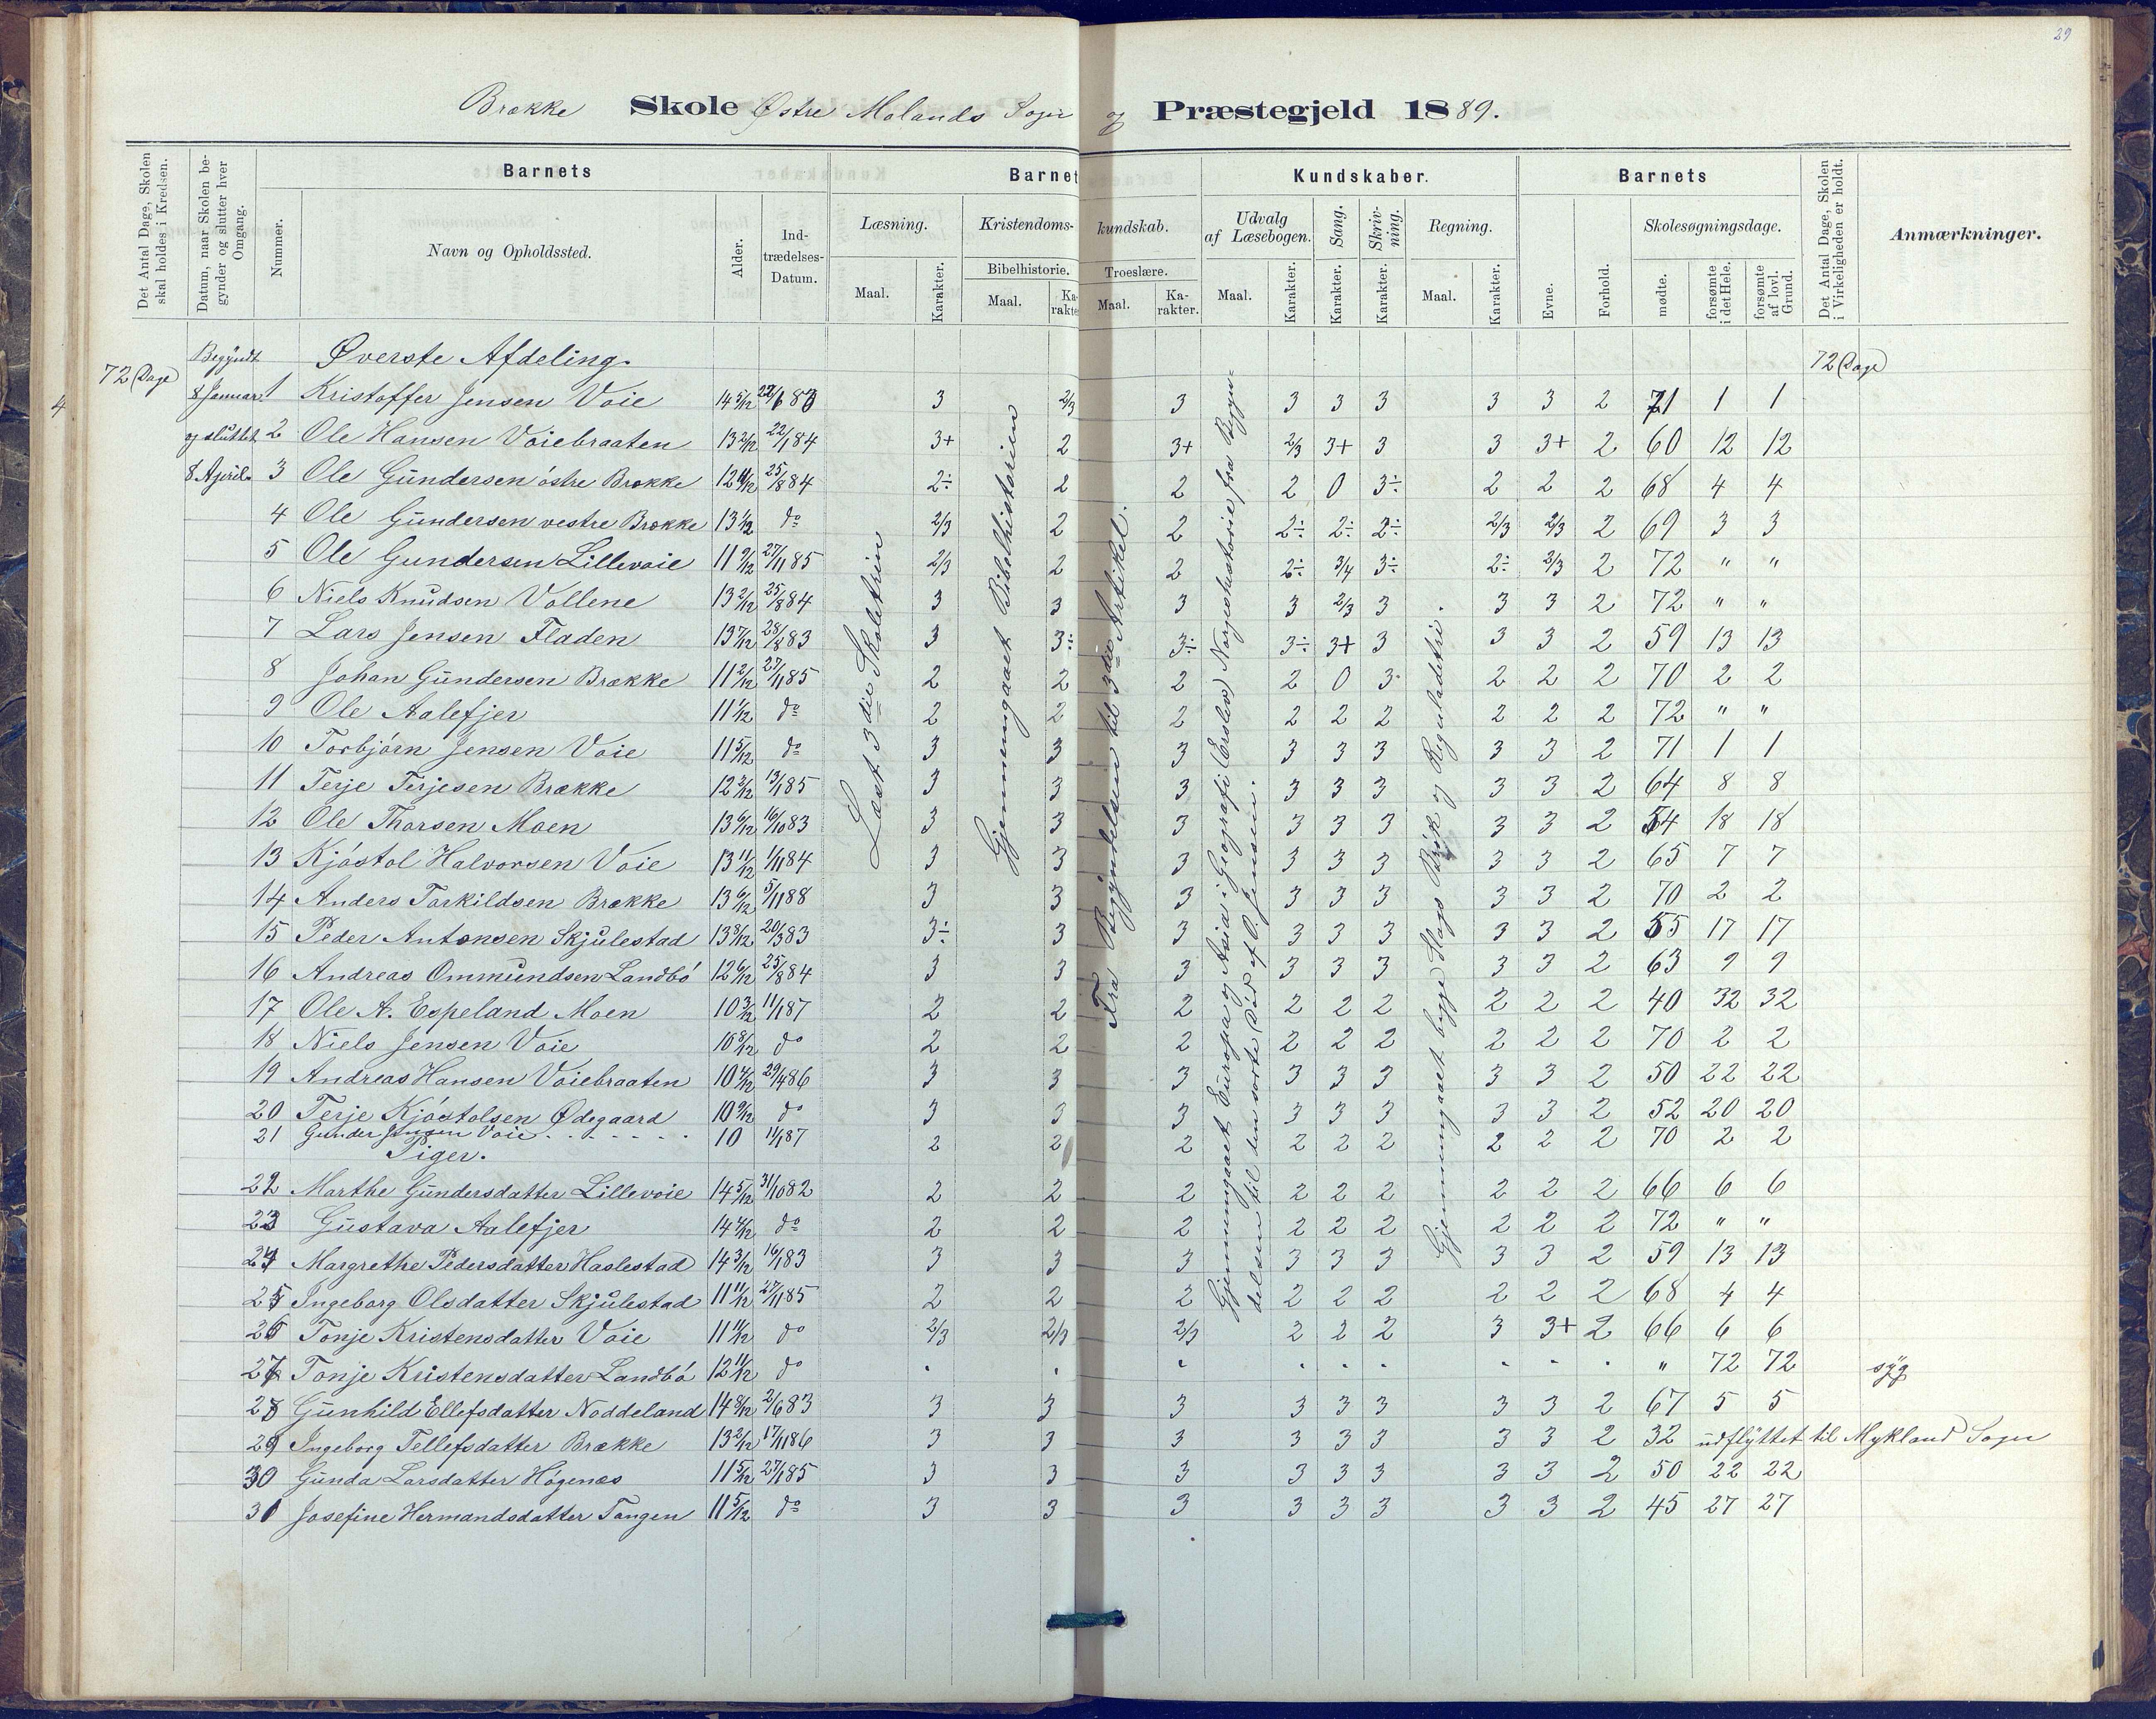 29
Brække Skole Østre Molands Sogn og Præstegjeld 1889.
Det Antal Dage, Skolen skal holdes i Kredsen.
Datum, naar Skolen begynder og slutter hver Omgang.
Barnets
Nummer.
Navn og Opholdssted.
Alder.
Indtrædelses-Datum.
Barnets Kundskaber.
Læsning.
Maal.
Karakter.
Kristendomskundskab.
Bibelhistorie.
Maal.
Karakter.
Troeslære.
Maal.
Karakter.
Udvalg af Læsebogen.
Maal.
Karakter.
Sang.
Karakter.
Skrivning.
Karakter.
Regning.
Maal.
Karakter.
Barnets
Evne.
Forhold.
Skolesøgningsdage.
mødte.
forsømte i det Hele.
forsømte af lovl. Grund.
Det Antal Dage, Skolen i Virkeligheden er holdt.
Anmærkninger.
4
72 Dage
Begyndt 8 Januar og sluttet 8 April.
Øverste Afdeling.
72 Dage
Læst 3die Skoletrin
Gjennemgaaet Bibelhistorien
Fra Begyndelsen til 3die Artikel.
Gjennemgaaet Europa og Asia i Geografi (Erslev) Norgeshistorie fra Begyndelsen til den sorte Død af O. Jensen.
Gjennemgaaet begge Slags Brøk og Reguladetri.
1 Kristoffer Jensen Voie 14 5/12 22/6 83 3 2/3 3 3 3 3 3 3 2 71 1 1
2 Ole Hansen Voiebraaten 13 2/12 22/1 84 3+ 2 3+ 2/3 3+ 3 3 3+ 2 60 12 12
3 Ole Gundersen östre Brække 12 11/12 25/8 84 2÷ 2 2 2 0 3÷ 2 2 2 68 4 4
4 Ole Gundersen vestre Brække 13 1/12 do 2/3 2 2 2÷ 2÷ 2÷ 2/3 2/3 2 69 3 3
5 Ole Gundersen Lillevoie 11 9/12 27/11 85 2/3 2 2 2÷ 3/4 3÷ 2÷ 2/3 2 72 " "
6 Niels Knudsen Vollene 13 2/12 25/8 84 3 3 3 3 2/3 3 3 3 2 72 " "
7 Lars Jensen Fladen 13 7/12 28/8 83 3 3÷ 3÷ 3÷ 3+ 3 3 3 2 59 13 13
8 Johan Gundersen Brække 11 2/12 27/11 85 2 2 2 2 0 3 2 2 2 70 2 2
9 Ole Aalefjer 11 1/12 do 2 2 2 2 2 2 2 2 2 72 " "
10 Torbjörn Jensen Voie 11 5/12 do 3 3 3 3 3 3 3 3 2 71 1 1
11 Terje Terjesen Brække 12 2/12 13/1 85 3 3 3 3 3 3 3 3 2 64 8 8
12 Ole Thorsen Moen 13 6/12 16/10 83 3 3 3 3 3 3 3 3 2 54 18 18
13 Kjöstol Halvorsen Voie 13 11/12 1/11 84 3 3 3 3 3 3 3 3 2 65 7 7
14 Anders Torkildsen Brække 13 6/12 5/11 88 3 3 3 3 3 3 3 3 2 70 2 2
15 Peder Antonsen Skjulestad 13 8/12 20/3 83 3÷ 3 3 3 3 3 3 3 2 55 17 17
16 Andreas Ommundsen Landbö 12 6/12 25/8 84 3 3 3 3 3 3 3 3 2 63 9 9
17 Ole A. Espeland Moen 10 3/12 11/1 87 2 2 2 2 2 2 2 2 2 40 32 32
18 Niels Jensen Voie 10 8/12 do 2 2 2 2 2 2 2 2 2 70 2 2
19 Andreas Hansen Voiebraaten 10 4/12 29/4 86 3 3 3 3 3 3 3 3 2 50 22 22
20 Terje Kjöstolsen Ødegaard 10 9/12 do 3 3 3 3 3 3 3 3 2 52 20 20
21 Gunder Jensen Voie 10 11/1 87 2 2 2 2 2 2 2 2 2 70 2 2
Piger.
22 Marthe Gundersdatter Lillevoie 14 5/12 31/10 82 2 2 2 2 2 2 2 2 2 66 6 6
23 Gustava Aalefjer 14 4/12 do 2 2 2 2 2 2 2 2 2 72 " "
24 Margrethe Pedersdatter Haslestad 14 3/12 16/1 83 3 3 3 3 3 3 3 3 2 59 13 13
25 Ingeborg Olsdatter Skjulestad 11 11/12 27/11 85 2 2 2 2 2 2 2 2 2 68 4 4
26 Tonje Kristensdatter Voie 11 11/12 do 2/3 2/3 2/3 2 2 2 3 3+ 2 66 6 6
27 Tonje Kristensdatter Landbö 12 11/12 do " 72 72 syg
28 Gunhild Ellefsdatter Noddeland 14 8/12 2/6 83 3 3 3 3 3 3 3 3 2 67 5 5
29 Ingeborg Tellefsdatter Brække 13 2/12 17/11 86 3 3 3 3 3 3 3 3 2 32 udflyttet til Mykland Sogn
30 Gunda Larsdatter Högenæs 11 5/12 27/1 85 3 3 3 3 3 3 3 3 2 50 22 22
31 Josefine Hermandsdatter Tangen 11 5/12 do 3 3 3 3 3 3 3 3 2 45 27 27